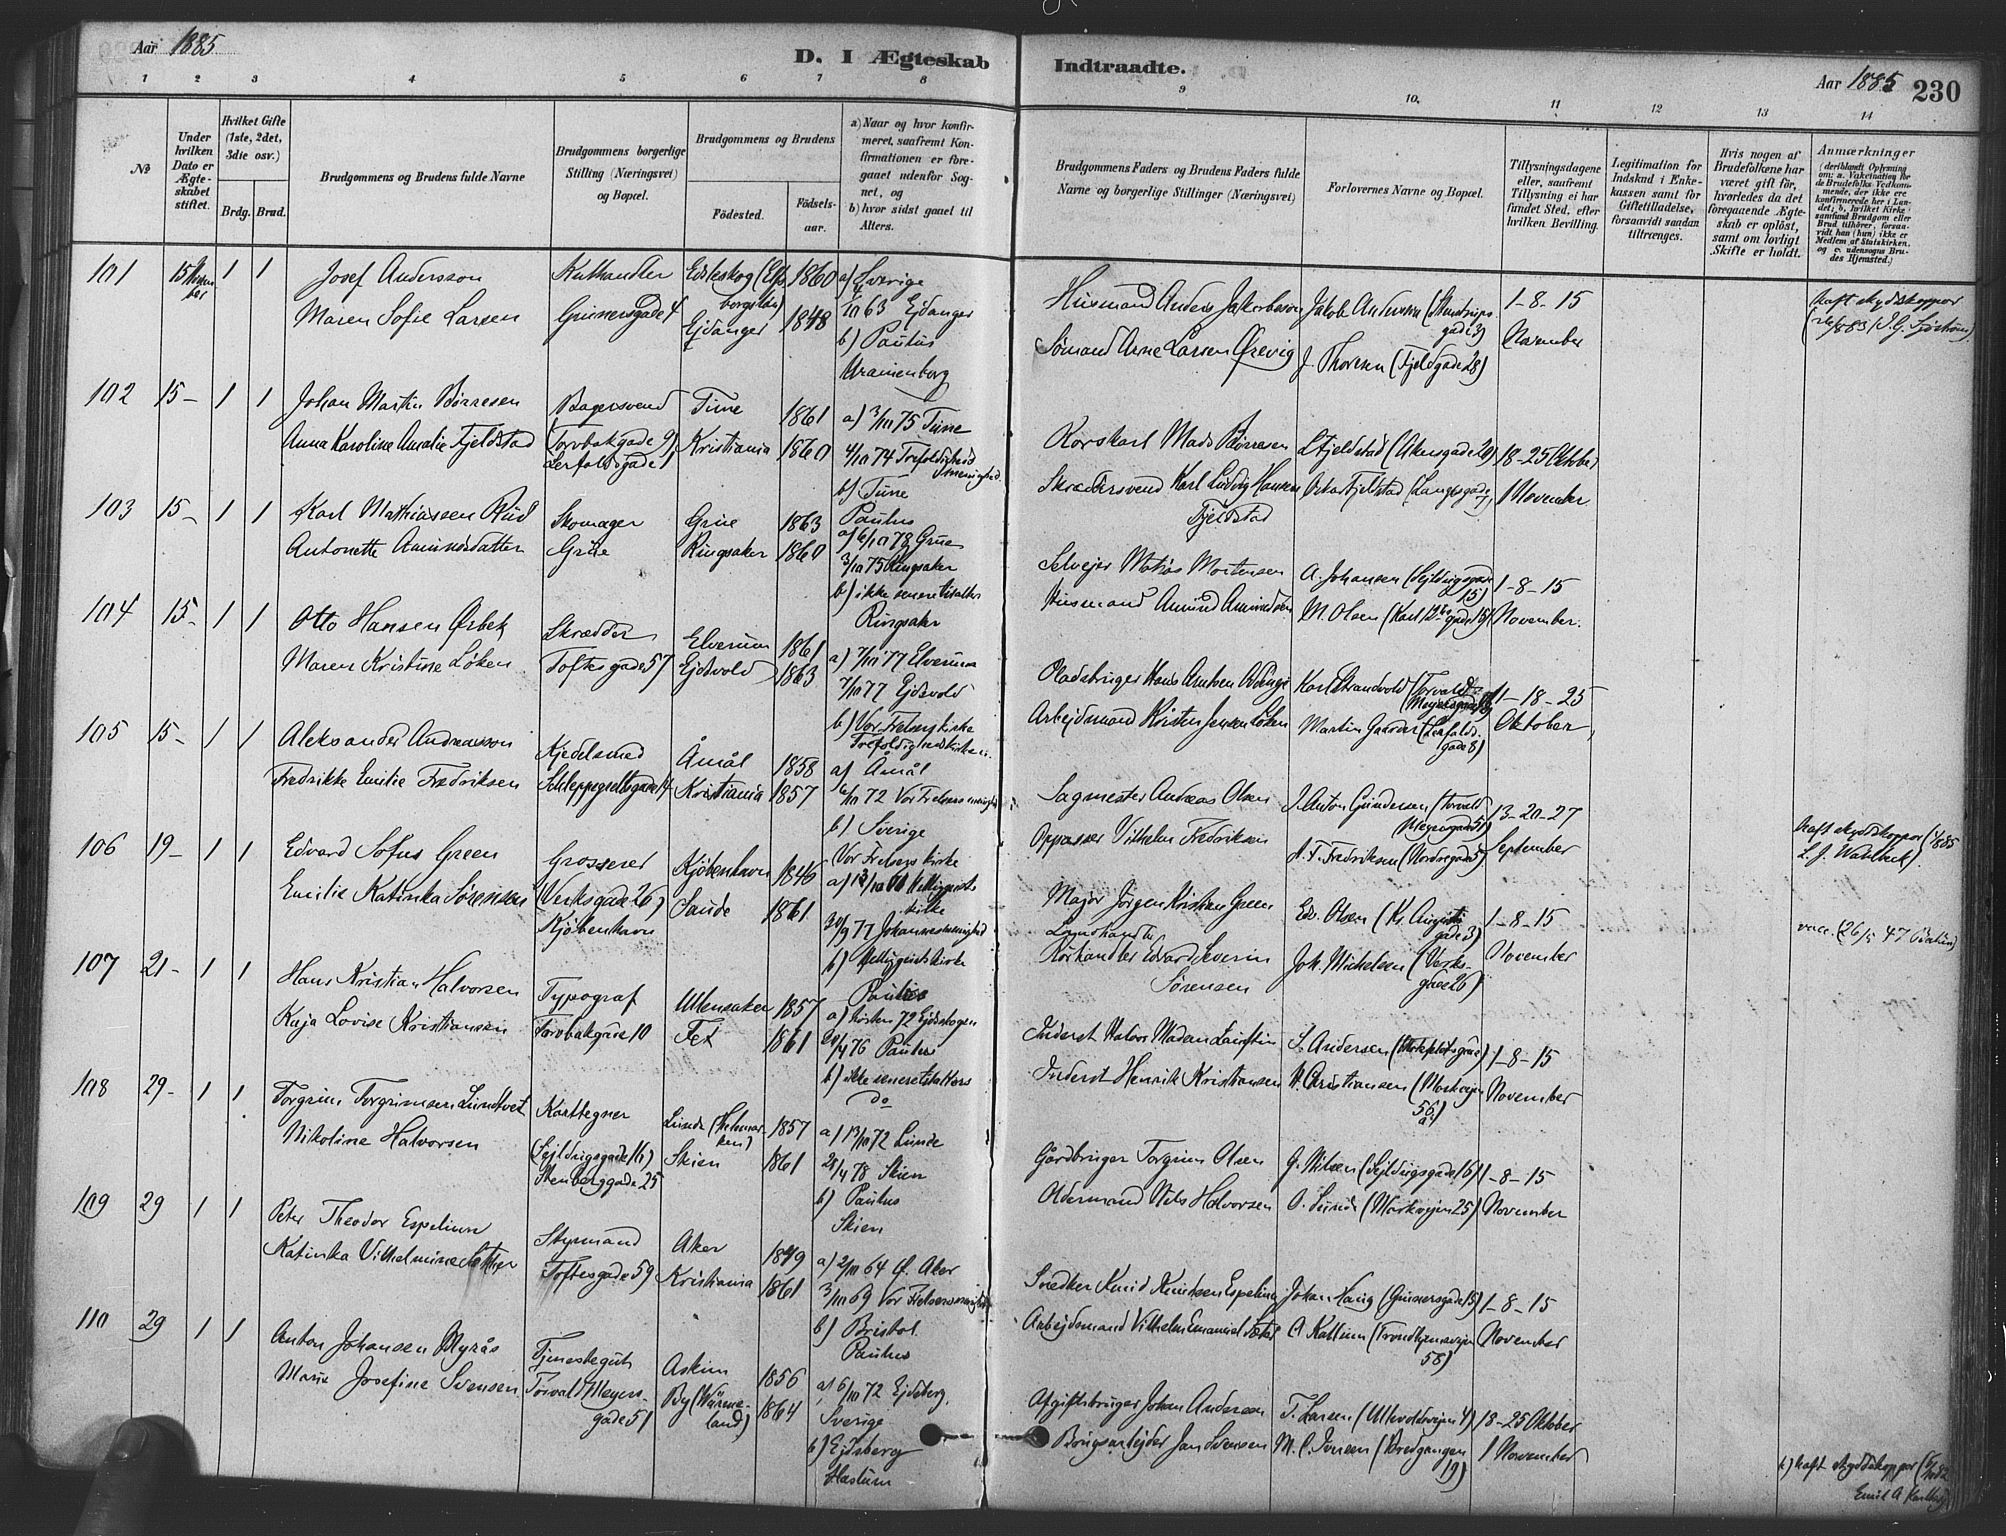 Aar 1885
D. I Ægteskab Indtraadte.
Aar 1885 230
1 2 3 4 5 6 7 8 9 10. 11 12 13 14
No
Under hvilken Dato er Ægteskabet stiftet.
Hvilket Gifte (1ste, 2det, 3die osv.)
Brdg. Brud.
Brudgommens og Brudens fulde Navne
Brudgommens borgerlige Stilling (Næringsvei) og Bopæl.
Brudgommens og Brudens
Fødested.
Fødselsaar.
a) Naar og hvor konfirmeret, saafremt Konfirmationen er foregaaet udenfor Sognet, og
b) hvor sidst gaaet til Alters.
Brudgommens Faders og Brudens Faders fulde Navne og borgerlige Stillinger (Næringsvei)
Forlovernes Navne og Bopæl.
Tillysningsdagene eller, saafremt Tillysning ei har fundet Sted, efter hvilken Bevilling.
Legitimation for Indskud i Enkekassen samt for Giftetilladelse, forsaavidt saadan tiltrænges.
Hvis nogen af Brudefolkene har været gift før, hvorledes da det foregaaende Ægteskab er opløst, samt om lovligt Skifte er holdt.
Anmærkninger
(deriblandt Oplysning om: a. Vakcination for de Brudefolks Vedkommende, der ikke ere konfirmerede her i Landet; b. hvilket Kirkesamfund Brudgom eller Brud tilhører, forsaavidt han (hun) ikke er Medlem af Statskirken, og c. udensogns Brudes Hjemsted.)
101 15 November 1 1 Josef Andersson
Maren Sofie Larsen
Grunersgade 4
Edsleskog (Elfsborgslän) 1860
Ejdanger 1848
a) Sverige
63 Ejdanger
b) Paulus
Uranienborg
Husmand Anders Jakobsson
Sømand Arne Larsen Ørevig
Jakob Andersen
J. Thoresen (Fjeldgade 28)
1-8-15
November
haft skydskoppor
102 15- 1 1 Johan Martin Børresen
Anna Karoline Amalie Fjeldstad
Bagersvend
(Torvbakgade 9)
Tune 1861
Kristiania 1860
a) 3/10 75 Tune
4/10 74 Trefoldigheds
b) Tune
Paulus
Mads Børresen
Skræddersvend Karl Ludvig Hansen Fjeldstad
Fjeldstad (Akersgade 20)
Oskar Fjeldstad
18-25 Oktober
1 November
103 15- 1 1 Karl Mathiassen Rud
Antonette Amundsdatter
Skomager
Grue
Grue 1863
Ringsaker 1860
a) 6/10 78 Grue
3/10 75 Ringsaker
b) ikke senere tilalters
Ringsaker
Selvejer Matias Mortensen
Husmand Amund Amundsen
A. Johansen
M. Olsen (Karl 12tes gade 15)
1-8-15
November.
104 15- 1 1 Otto Hansen Ørbek
Maren Kristine Løken
Skrædder
Toftesgade 57
Elverum 1861
Ejdsvold 1863
a) 7/10 77 Elverum
7/10 77 Ejdsvold
b) Vor Frelsers kirke
Trefoldighedskirken
Arbejdsmand Kristen Jensen Løken
Karl Strandvold
1-18-25
Oktober
105 15- 1 1 Aleksander Andreasson
Fredrikke Emilie Fredriksen
Kjedelsmed
Schleppegrellsgade 14
Åmål 1858
Kristiania 1857
a) Åmål
6/10 72 Vor Frelsers menighed
b) Sverige
Vor Frelsers kirke
Sagmester Andreas Olsen
Oppasser Vilhelm Fredriksen
J. Anton Gundersen (Torvald Meyersgade 51)
A. F. Fredriksen (Nordregade 5)
13-20-27
September
haft skydskoppor
106 19- 1 1 Edvard Sofus Green
Emilie Katinka Sørensen
Grosserer
(Verksgade 26)
Kjøbenhavn
Kjøbenhavn 1846
Sande 1861
Helliggeists kirke
30/9 77 Johannesmenighed
b) Helliggeistskirke
Paulus
Major Jørgen Kristian Green
Edvard Severin Sørensen
Ed. Olsen
Joh. Michelsen (Verksgade 26)
1-8-15
November
vacc.
107 21- 1 1 Hans Kristian Halvorsen
Kaja Lovise Kristiansen
Typograf
Torvbakgade 10
Ullensaker 1857
Fet 1861
a) høsten 72 Ejdskogen
76 Paulus
b) ikke senere tilalters
do
Inderst Henrik Kristiansen
S. Andersen
H. Christiansen (Markvejen 56a)
1-8-15
November
108 29- 1 1 Torgrim Torgrimsen Lundtvet
Nikoline Halvorsen
Karttegner
(Sejldugsgade 16)
Stenberggade 25
Lunde (Telemarken) 1857
Skien 1861
a) 13/10 72 Lunde
28/4 78 Skien
b) Paulus
Skien
Gårdbruger Torgrim Olsen
Oldermand Nils Halvorsen
G. Nilsen (Sejldugsgade 16)
O. Lunde (Markvejen 25)
1-8-15
November
109 29 1 1 Peter Theodor Espeliun
Katinka Vilhelmine
Styrmand
Toftesgade 59
Aker 1849
Kristiania 1861
a) 2/10 64 Ø. Aker
3/10 69 Vor Frelsers menighed
b) Bristol
Paulus
Snedker Knud Knudsen Espeliun
Arbejdsmand Vilhelm Emanuel
Johan Haug (Grünersgade 15)
A Kallium (Trondhjemsvejen 58)
1-8-15
November
110 29 1 1 Anton Johansen Myrås
Marie Josefine Svensen
Tjenestegut
Torvald Meyersgade 51
Askim 1856
By (Värmeland) 1864
a) 6/10 72 Ejdsberg
Sverige
b) Ejdsberg
Haslum
Afgiftsbruger Johan Andersen
Brugsarbejder Jan Svensen
T. Larsen (Ullevoldsvejen 4)
M. C. Iversen (Bredgangen 19)
18-25 Oktober
1 November
b) haft skyddskoppor